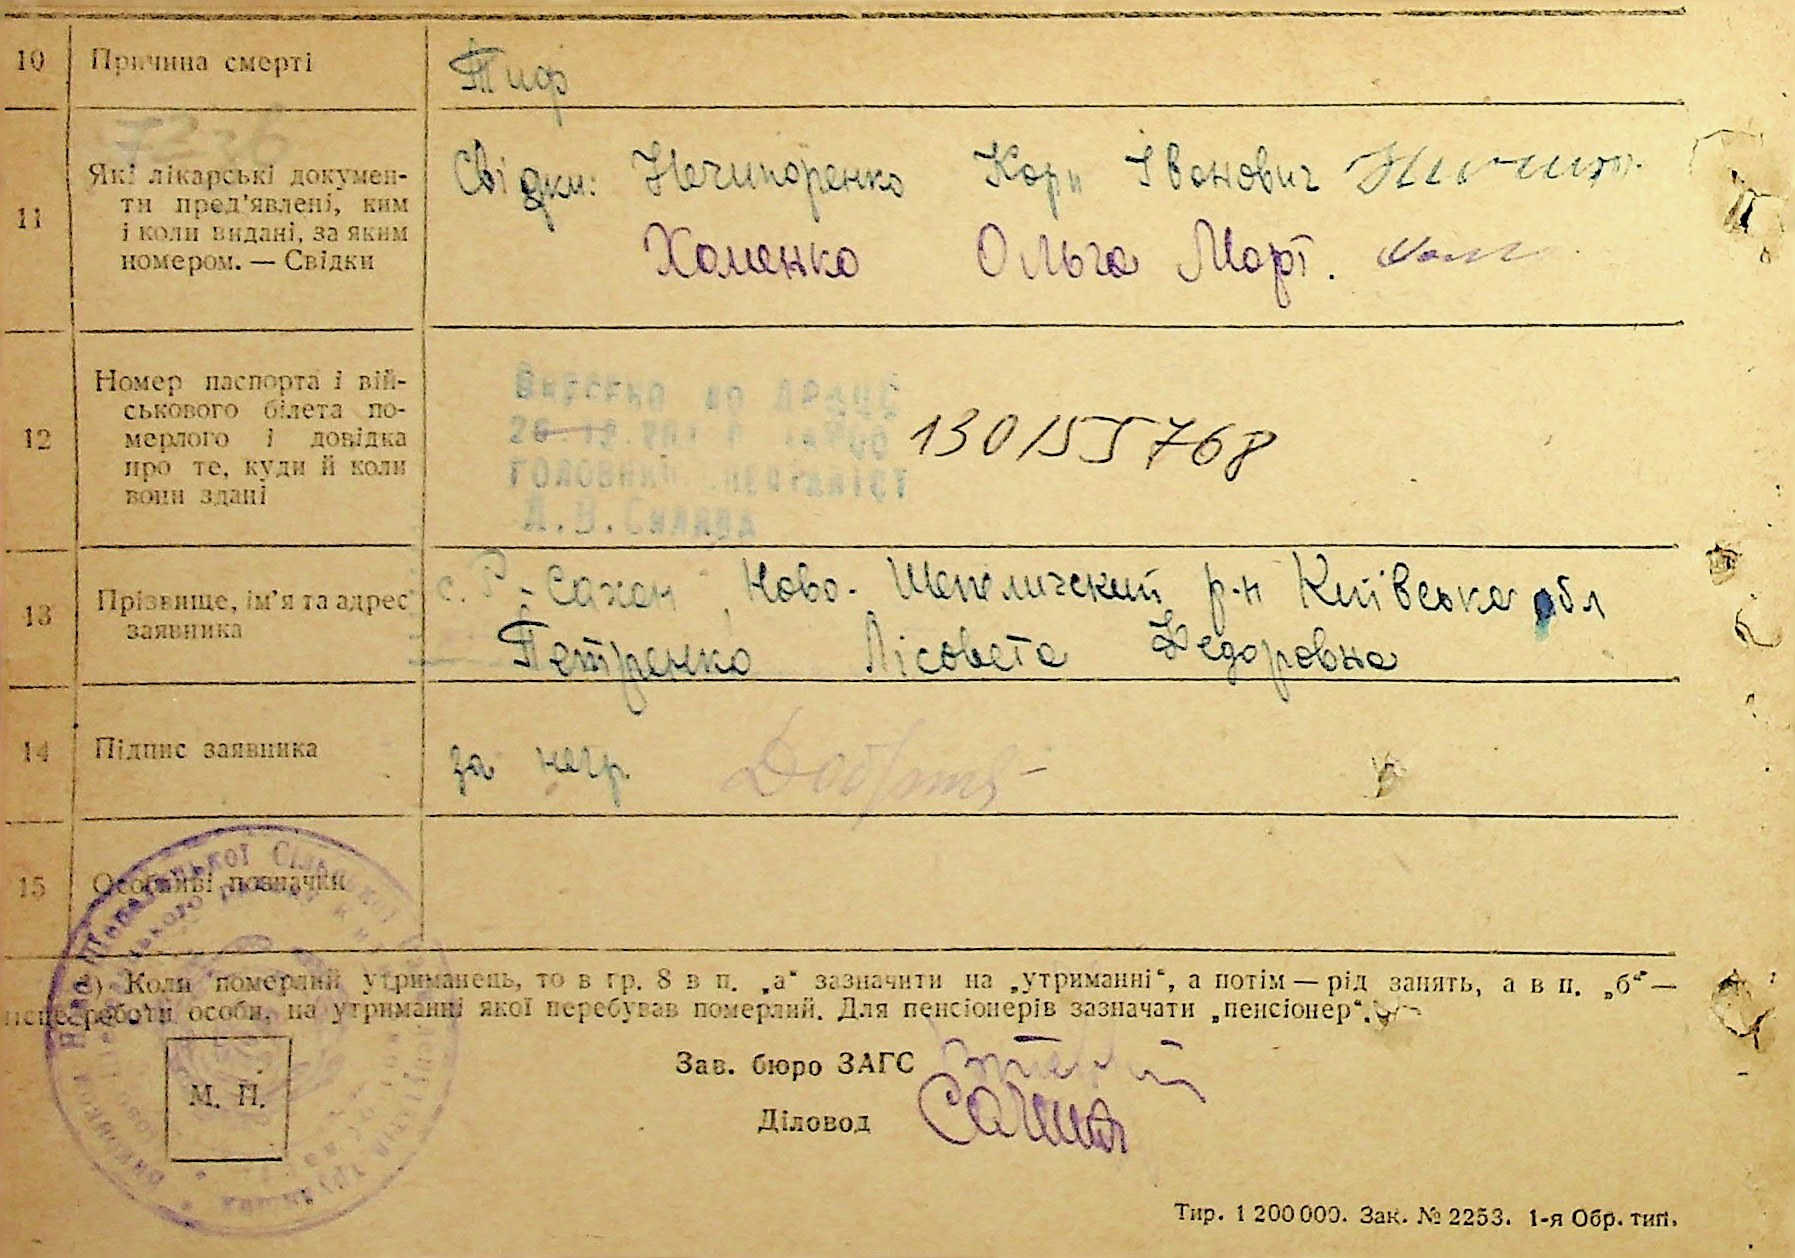 10 Причина смерті Тиф
7226
11 Які лікарські докумен-
ти пред'явлені, ким
і коли видані, за яким
номером. — Свідки
Свідки: Нечипоренко Карп Іванович
Хоменко Ольга Март.
12 Номер паспорта і вій-
ськового білета по-
мерлого і довідка
про те, куди й коли
вони здані
Внесено до ДРАЦС
головний спеціаліст
130155768
13 Прізвище, ім'я та адрес
заявника
с. Р-Сахен, Ново-Шепеличский р-н Київська обл
Петренко Лісовета Федоровна
14 Підпис заявника за негр.
15 Особливі позначки
*) Коли померлий утриманець, то в гр. 8 в п. „а“ зазначити на „утриманні“, а потім — рід занять, а в п. „б“ —
місце роботи особи, на утриманні якої перебував померлий. Для пенсіонерів зазначати „пенсіонер“.
Зав. бюро ЗАГС
М. П.
Діловод
Тир. 1 200 000. Зак. № 2253. 1-я Обр. тип.